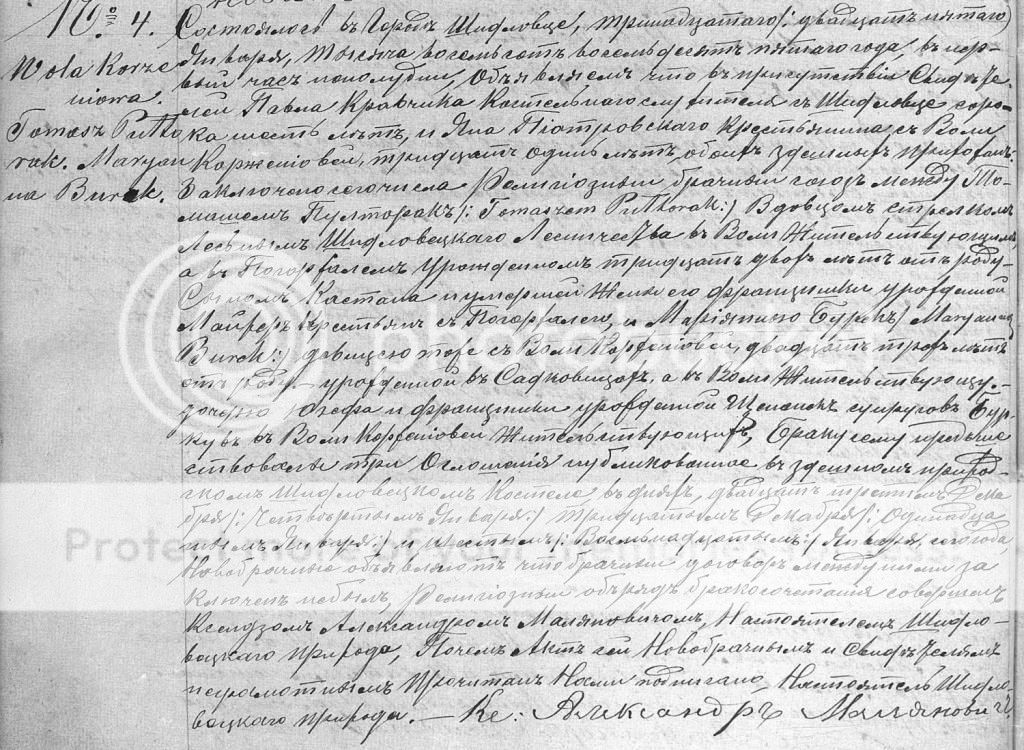 № 4.
Wola Korze
niowa.
Tomasz Pułto
rak. Maryan
na Burek.
Состоялось въ Городѣ Шидловце, тринадцатаго /: двадцать пятаго/
Января, тысяча восемьсотъ восемьдесятъ пятаго года, въ пер-
вый часъ пополудни, Объявляемъ что въ присутствіи Свидѣте-
лей Павла Кравчика Костельнаго служителя съ Шидловце соро-
ка шесть лѣтъ, и Яна Піотровскаго крестьянина съ Воли
Корженіовей, тридцать одинъ лѣтъ, обоихъ здешнихъ прихожанъ.
Заключено сего числа Религіозный брачный союзъ между То-
машемъ Пулторакъ /: Tomaszem Pułtorak :/ Вдовцомъ стрелкомъ
Леснымъ Шидловецкаго Лесничества въ Воли Жительствующимъ
а въ Погоржалемъ Урожденномъ тридцать двохъ лѣтъ отъ роду
Сыномъ Каетана и умершей Жены его Францишки урожденной
Майхеръ крестьянъ съ Погоржалего, и Маріянною Бурекъ / Maryanną
Burek :/ девицею тоже съ Воли Корженіовей, двадцать трехъ лѣтъ
отъ роду, урожденной въ Садковицахъ, а въ Воли Жительствующу.
дочерью Юзефа и Францишки урожденной Щепанекъ супруговъ Бур-
ковъ въ Воли Корженіовей Жительствующихъ, Браку сему предше
ствовали три Оглашенія публикованное въ здешномъ приход-
скомъ Шидловецкомъ Костеле въ дняхъ, двадцать третьимъ Дека
бря /: Четвьортымъ Января :/ тридцатымъ Декабря /: Одинадца
тымъ Января :/ и шестымъ /: Восемнадцатымъ :/ Января сего года,
Новобрачные объявляютъ что брачный договоръ между ними за
ключенъ небылъ, Религіозный обрядъ бракосочетанія совершенъ
Ксендзомъ Александромъ Маляновичомъ, Настоятелемъ Шидло-
вецкаго прихода, Почемъ Актъ сей Новобрачнымъ и Свидѣтелямъ
неграмотнымъ Прочитанъ Нами подписано, Настоятель Шидло-
вецкаго прихода. — Кс: Александръ Маляновичъ